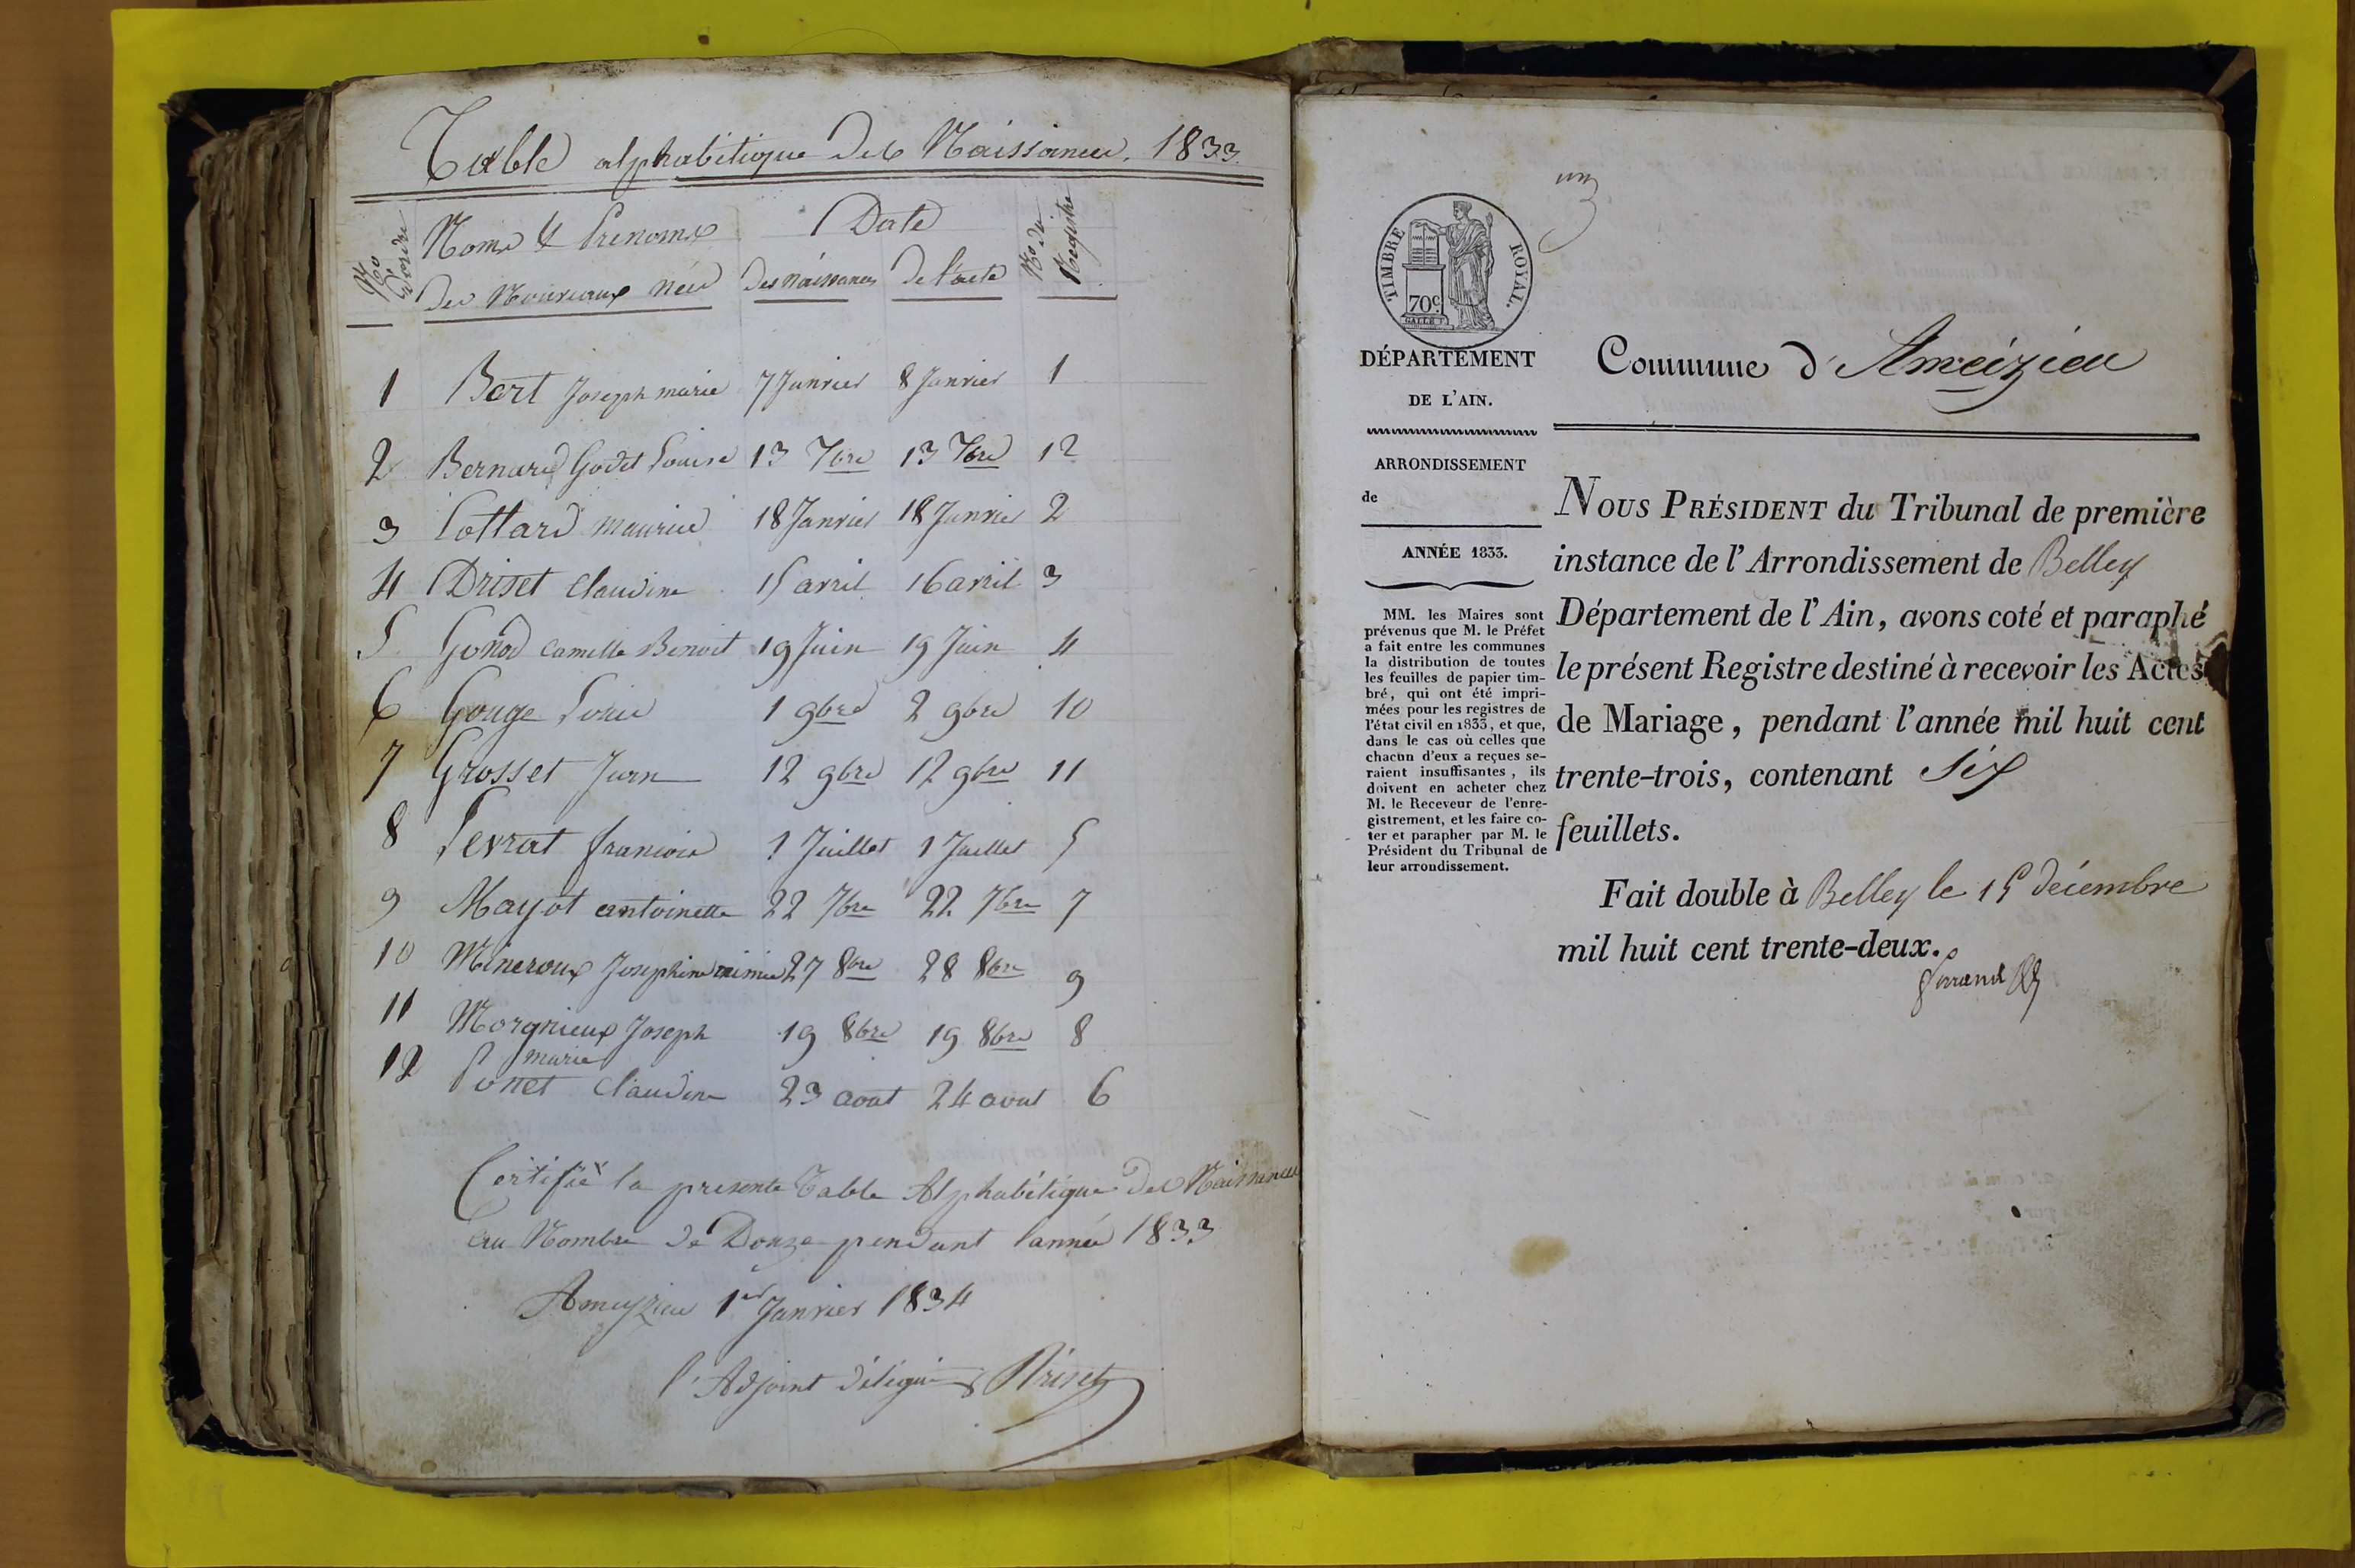 Table alphabétique des Naissances. 1833.
No d'ordre
Noms & Prenoms
des Nouveaux nés
Date
des Naissances
de l'acte
No du Registre
1 Bert Joseph marie 7 Janvier 8 Janvier 1
2 Bernard Godet Louise 13 7bre 13 7bre 12
3 Cottard maurice 18 Janvier 18 Janvier 2
4 Driset Claudine 15 avril 16 avril 3
5 Gonod Camille Benoit 19 Juin 19 Juin 4
6 Gouge 1 9bre 2 9bre 10
7 Grosset Jean 12 9bre 12 9bre 11
8 Peyrat francois 1 Juillet 1 Juillet 5
9 Mayot antoinette 22 7bre 22 7bre 7
10 Mineroux Josephine 27 8bre 28 8bre 9
11 Morgnieux Joseph 19 8bre 19 8bre 8
marie
12 Ponet Claudine 23 aout 24 aout 6
Certifié la presente Table Alphabétique des Naissances
au Nombre de Douze pendant l'année 1833
Ameyzieu 1er Janvier 1834
l'Adjoint délégué Driset
un
TIMBRE ROYAL.
70c.
GALLE F.
DÉPARTEMENT
DE L'AIN.
ARRONDISSEMENT
de
ANNÉE 1833.
MM. les Maires sont
prévenus que M. le Préfet
a fait entre les communes
la distribution de toutes
les feuilles de papier tim-
bré, qui ont été impri-
mées pour les registres de
l'état civil en 1833, et que,
dans le cas où celles que
chacun d'eux a reçues se-
raient insuffisantes, ils
doivent en acheter chez
M. le Receveur de l'enre-
gistrement, et les faire co-
ter et parapher par M. le
Président du Tribunal de
leur arrondissement.
Commune d'Ameizieu
NOUS PRÉSIDENT du Tribunal de première
instance de l'Arrondissement de Belley
Département de l'Ain, avons coté et paraphé
le présent Registre destiné à recevoir les Actes
de Mariage, pendant l'année mil huit cent
trente-trois, contenant Six
feuillets.
Fait double à Belley le 15 décembre
mil huit cent trente-deux.